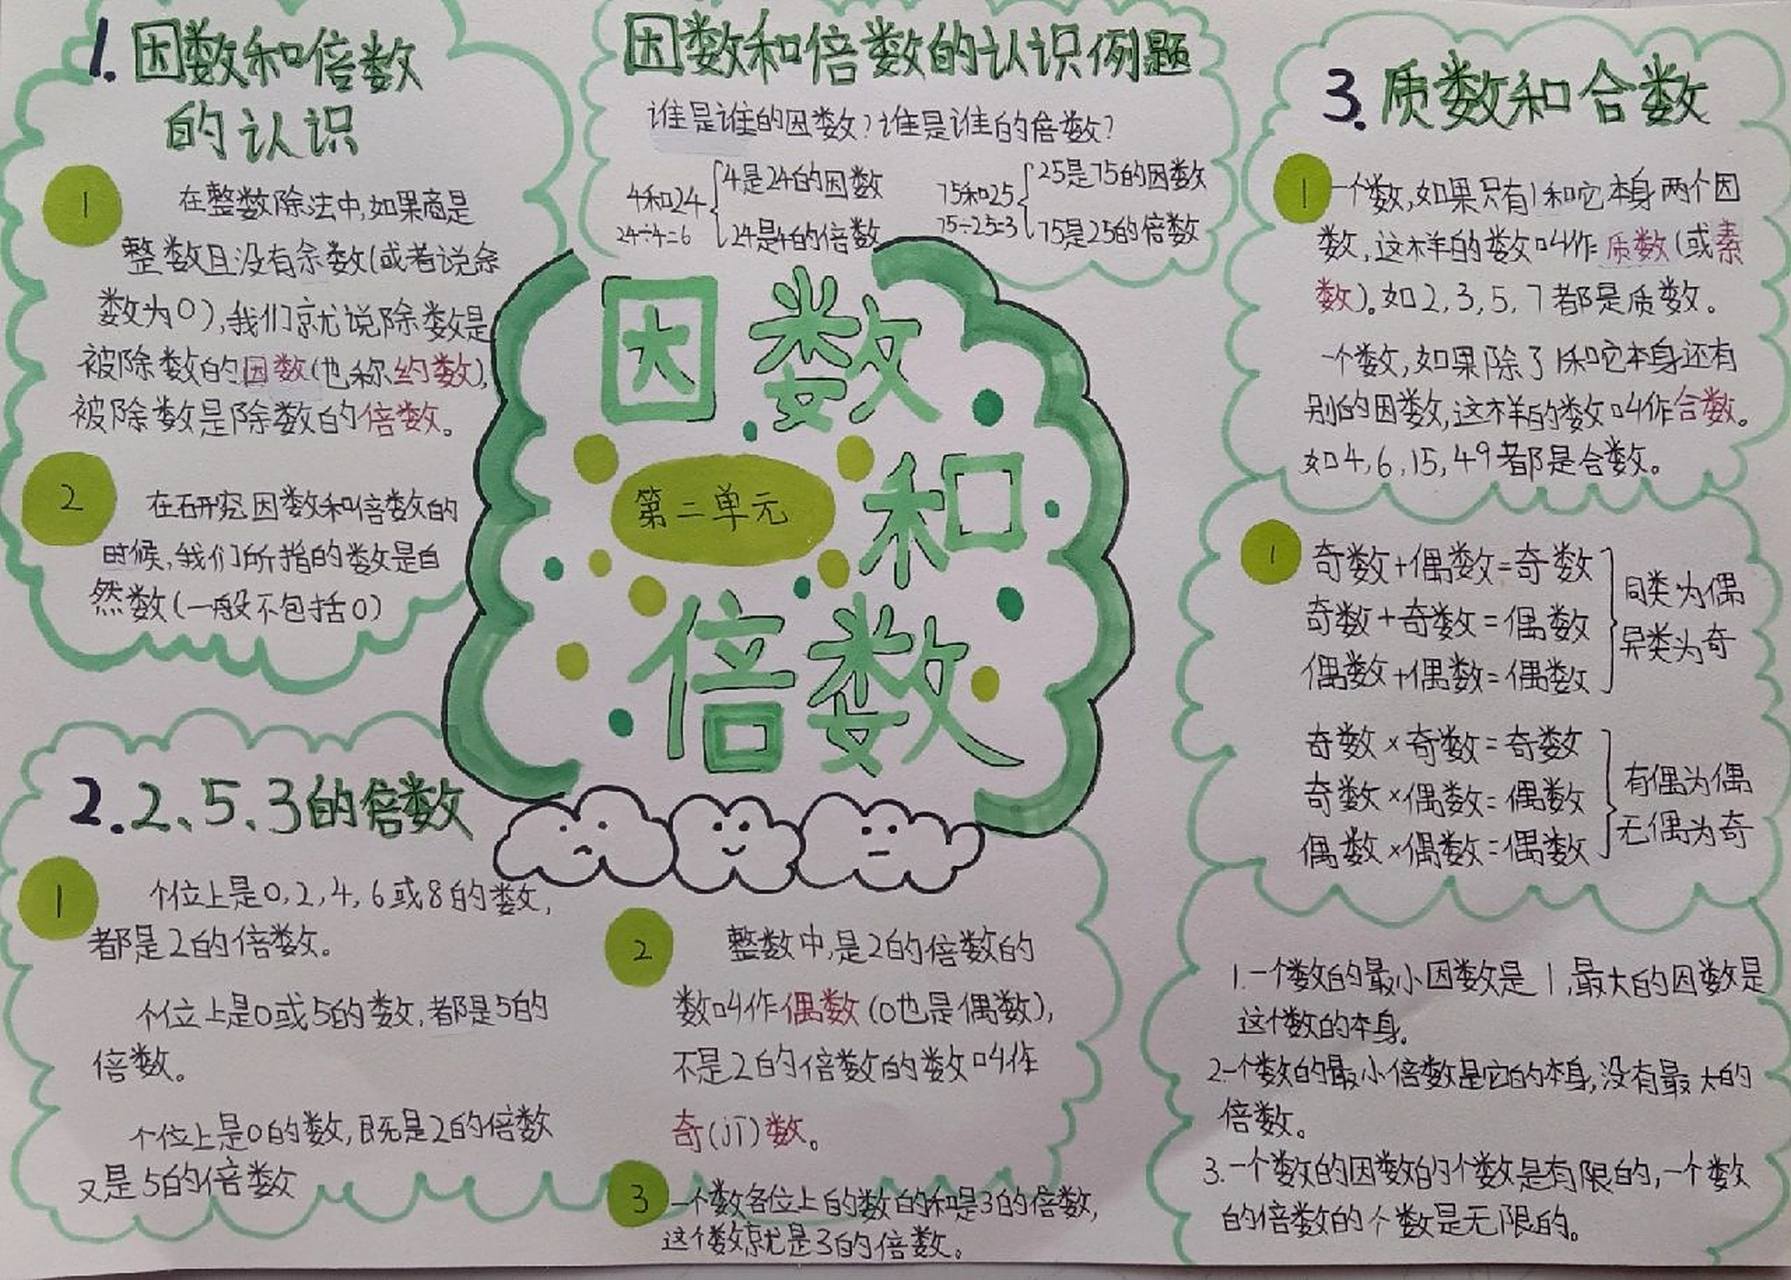 1.因数和倍数
的认识
1 在整数除法中,如果商是
整数且没有余数(或者说余
数为0),我们就说除数是
被除数的因数(也称约数),
被除数是除数的倍数。
2 在研究因数和倍数的
时候,我们所指的数是自
然数(一般不包括0)
因数和倍数的认识例题
谁是谁的因数?谁是谁的倍数?
4和24 4是24的因数
24÷4=6 24是4的倍数
75和25 25是75的因数
75÷25=3 75是25的倍数
因数
和
倍数
第二单元
2.2、5、3的倍数
1 个位上是0,2,4,6或8的数,
都是2的倍数。
个位上是0或5的数,都是5的
倍数。
个位上是0的数,既是2的倍数
又是5的倍数
2 整数中,是2的倍数的
数叫作偶数(0也是偶数),
不是2的倍数的数叫作
奇(jī)数。
3 一个数各位上的数的和是3的倍数,
这个数就是3的倍数。
3.质数和合数
1 一个数,如果只有1和它本身两个因
数,这样的数叫作质数(或素
数)。如2,3,5,7都是质数。
一个数,如果除了1和它本身还有
别的因数,这样的数叫作合数。
如4,6,15,49都是合数。
1 奇数+偶数=奇数
奇数+奇数=偶数
偶数+偶数=偶数
同类为偶
异类为奇
奇数×奇数=奇数
奇数×偶数=偶数
偶数×偶数=偶数
有偶为偶
无偶为奇
1.一个数的最小因数是1,最大的因数是
这个数的本身。
2.一个数的最小倍数是它的本身,没有最大的
倍数。
3.一个数的因数的个数是有限的,一个数
的倍数的个数是无限的。